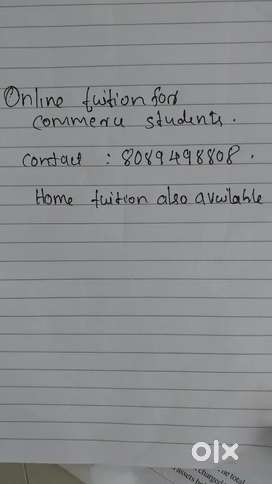 Online tuition for
commerce students.
contact : 8089498808.
Home tuition also available
olx